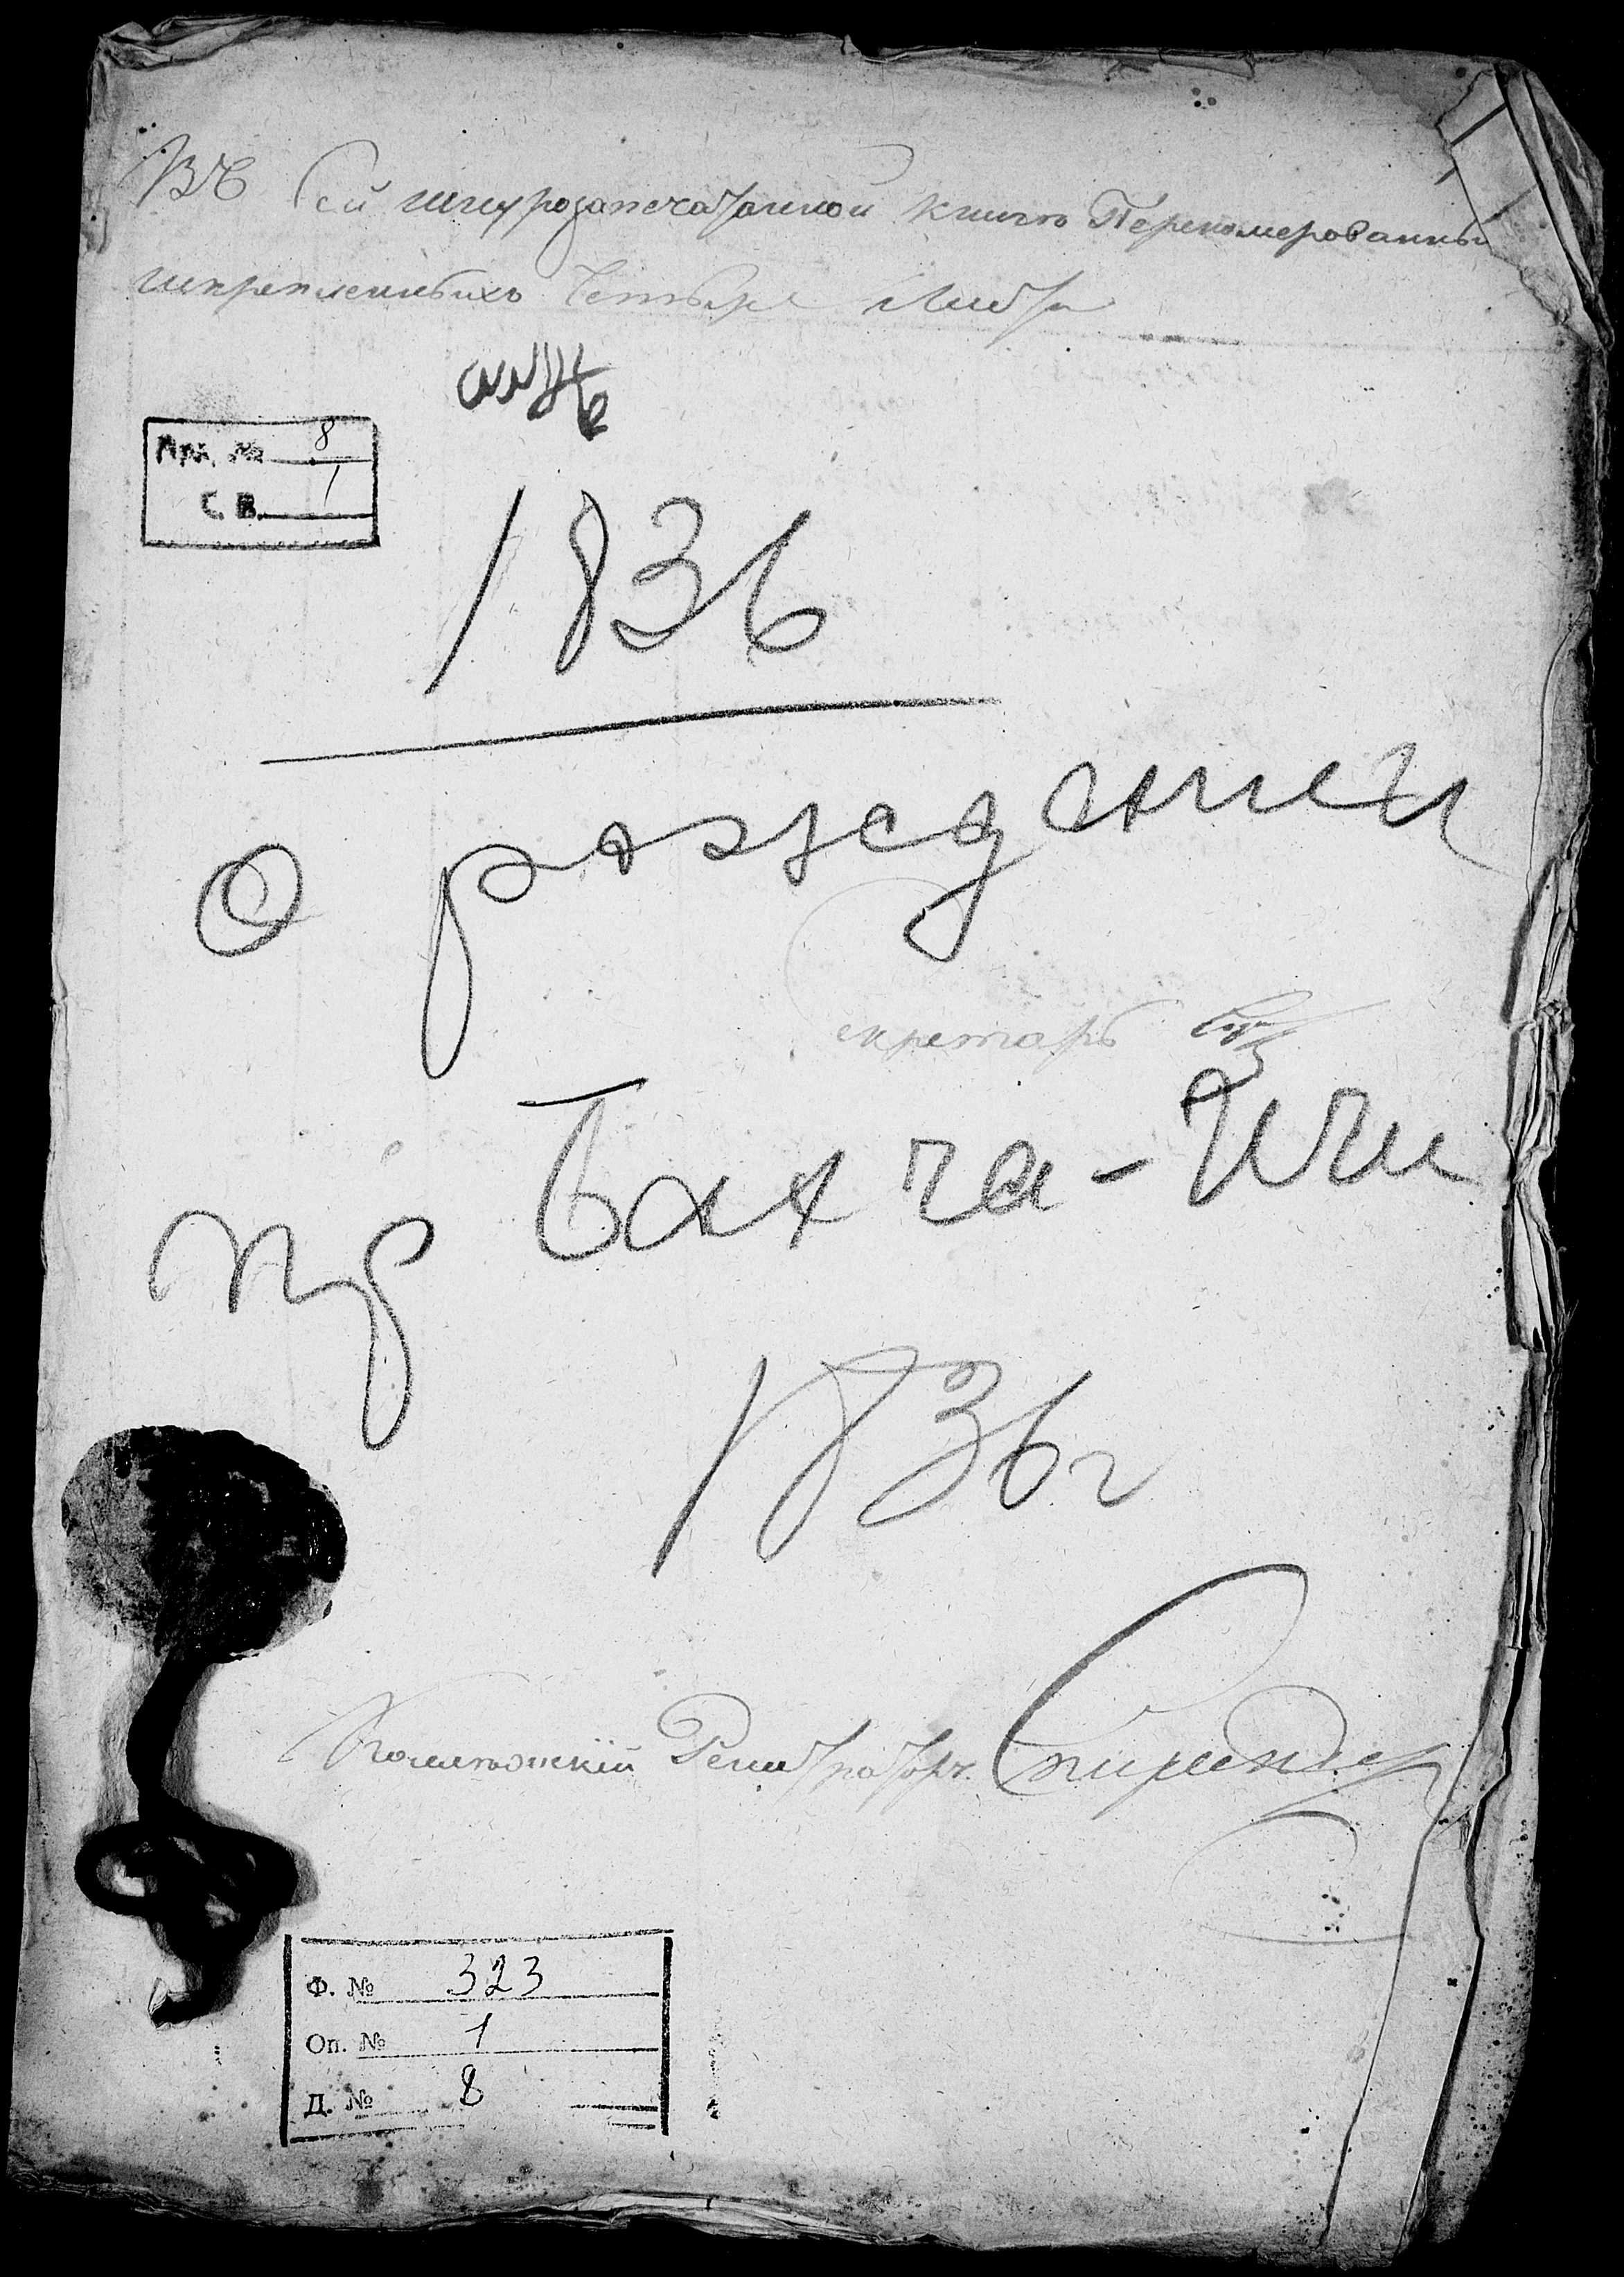 Въ сей шнурозапечатанной книге Перенумерованны
искрепленныхъ Четыре Листа
Арх. № 8
С В. 1
1836
О рождении
екретарь
пр Бахча-Эли
1836 г
Коллежскій Регистраторъ
Ф. № 323
Оп. № 1
Д. № 8